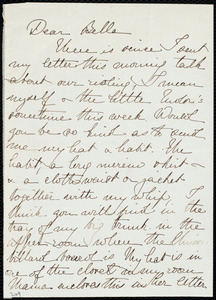 Dear Bella
There is since I sent
my letter this morning talk
about our riding, I mean
myself & the little Endor's
sometime this week. Would
you be so kind as to send
me my hat & habit. The
habit, a long merino skirt &
& a cloth waist or jacket
together with my whip. I
think you will find in the
tray of my big trunk in the
upper room where the
billiard board is. My hat is in
one of the closet in my room
Mama encloses this in her letter